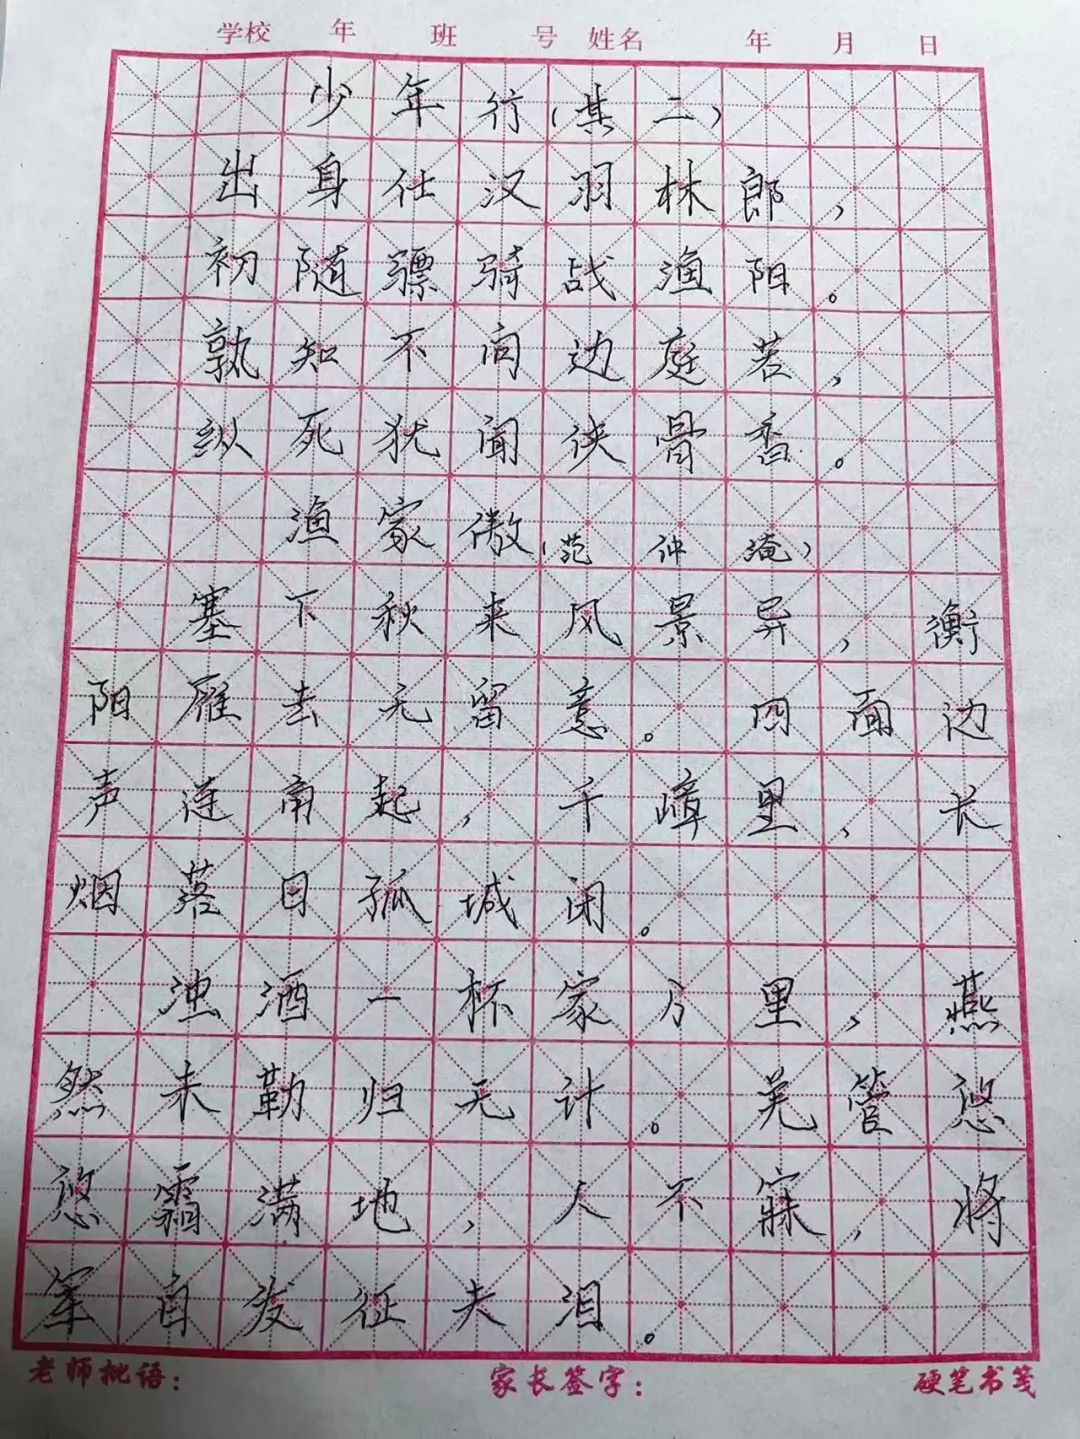 学校 年 班 号 姓名 年 月 日
少年行（其二）
出身仕汉羽林郎，
初随骠骑战渔阳。
孰知不向边庭苦，
纵死犹闻侠骨香。
渔家傲（范仲淹）
塞下秋来风景异，衡
阳雁去无留意。四面边
声连角起，千嶂里，长
烟落日孤城闭。
浊酒一杯家万里，燕
然未勒归无计。羌管悠
悠霜满地，人不寐，将
军白发征夫泪。
老师批语： 家长签字： 硬笔书笺